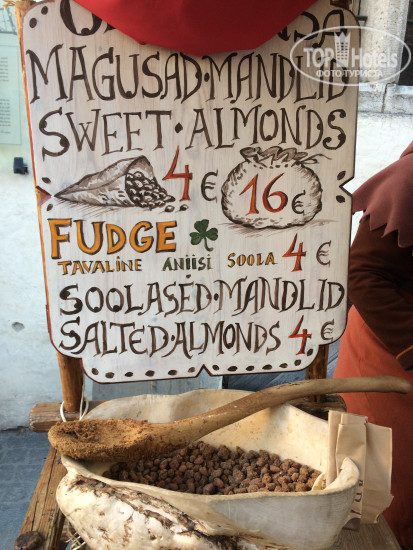 MAGUSAD·MANDLID
SWEET·ALMONDS
4 € 16 €
FUDGE
TAVALINE ANIISI SOOLA 4 €
SOOLASED·MANDLID
SALTED·ALMONDS 4 €
TOPHotels
ФОТО ТУРИСТА